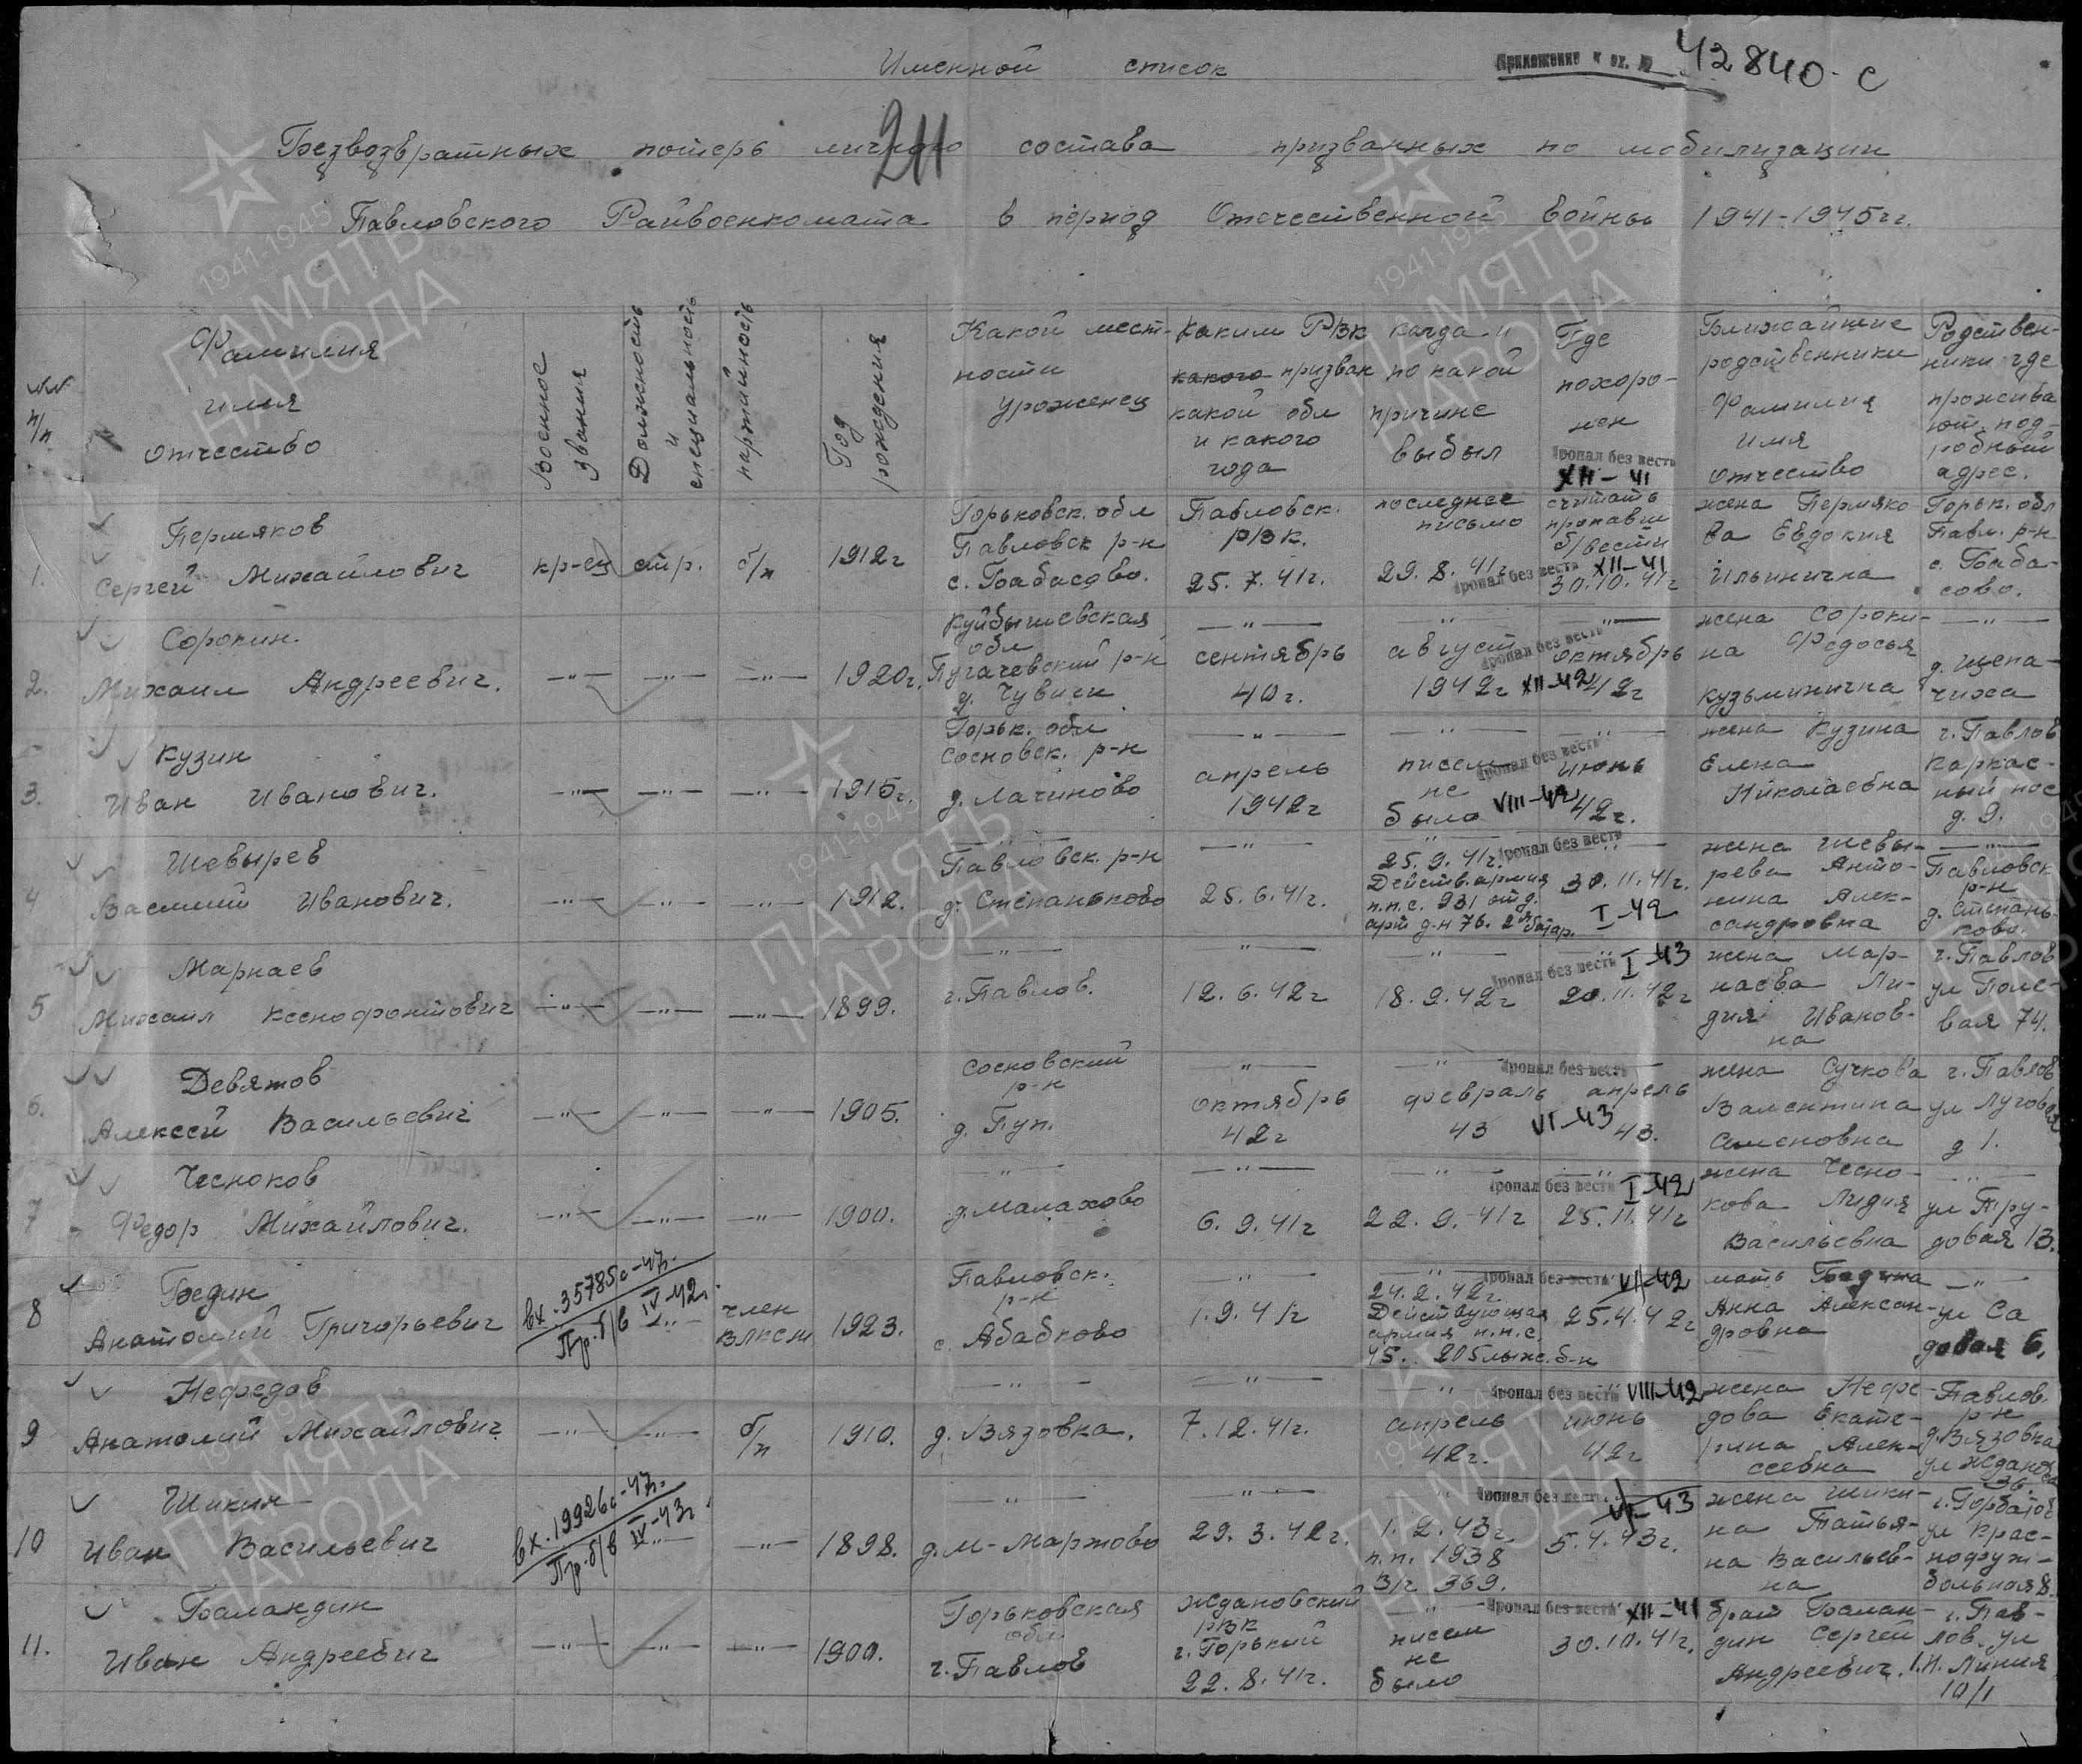 Именной список
Приложение к вх. № 42840-с
211
Безвозвратных потерь личного состава призванных по мобилизации
Павловского Райвоенкомата в период Отечественной войны 1941-1945 гг.
№№ п/п
Фамилия имя отчество
Военное звание
Должность и специальность
партийность
Год рождения
Какой местности уроженец
Каким РВК какого призван какой обл и какого года
когда и по какой причине выбыл
Где похоронен
Ближайшие родственники Фамилия имя отчество
Родственники где проживают подробный адрес.
Пропал без вести XII-41
1. Пермяков Сергей Михайлович
кр-ец стр. б/п 1912г
Горьковск. обл Павловск р-н с. Бабасово.
Павловск. РВК. 25.7.41г.
последнее письмо 29.8.41г
считать пропавш б/вести 30.10.41г
жена Пермякова Евдокия Ильинична
Горьк. обл Павл. р-н с. Бабасово.
Пропал без вести XII-41
2. Сорокин. Михаил Андреевич.
—"— —"— —"— 1920г.
Куйбышевская обл Пугачевский р-н
—"— сентябрь 40г.
—"— август 1942г
—"— октябрь 42г
Пропал без вести XII-42
жена Сорокина Федосья Кузьминична
—"— д. Щепачиха
3. Кузин Иван Иванович.
—"— —"— —"— 1915г.
Горьк. обл Сосновск. р-н д. Лачиново
—"— апрель 1942г
—"— писем не было
—"— июнь 42г.
Пропал без вести VIII-42
жена Кузина Елена Николаевна
г. Павлов Каркасный пос д. 9.
4 Шевырев Василий Иванович.
—"— —"— —"— 1912.
—"— Павловск. р-н д. Степаньково
—"— 25.6.41г.
—"— 25.9.41г. Действ. армия п.п.с. 931 отд. арт д-н 76. 2я батар.
—"— 30.11.41г.
Пропал без вести I-42
жена Шевырева Антонина Александровна
—"— Павловск р-н д. Степаньково.
5 Марнаев Михаил Ксенофонтович
—"— —"— —"— 1899.
—"— г. Павлов.
—"— 12.6.42г
—"— 18.9.42г
—"— 20.11.42г
Пропал без вести I-43
жена Марнаева Лидия Ивановна
г. Павлов ул Полевая 74.
6. Девятов Алексей Васильевич
—"— —"— —"— 1905.
Сосновский р-н д. Пуп.
—"— октябрь 42г
—"— февраль 43
апрель 43.
Пропал без вести VI-43
жена Сучкова Валентина Семеновна
г. Павлов ул Луговая д 1.
7 Чесноков Федор Михайлович.
—"— —"— —"— 1900.
—"— д. Малахово
—"— 6.9.41г
—"— 22.9.41г
—"— 25.11.41г
Пропал без вести I-42
жена Чеснокова Лидия Васильевна
—"— ул Трудовая 13.
8 Бедин Анатолий Григорьевич
вх. 35785с-47г.
Пр. б/в IV-42г.
—"— член ВЛКСМ 1923.
Павловск. р-н с. Абабково
—"— 1.9.41г
—"— 24.2.42г. Действующая армия п.п.с. 45. 205 лыж. б-н
25.4.42г
Пропал без вести VI-42
мать Бедина Анна Александровна
—"— ул Садовая 6.
9 Нефедов Анатолий Михайлович
—"— —"— б/п 1910.
—"— д. Вязовка.
—"— 7.12.41г.
—"— апрель 42г.
—"— июнь 42г
Пропал без вести VIII-42
жена Нефедова Екатерина Алексеевна
Павлов. р-н д. Вязовка ул Жданова 36.
10 Шикин Иван Васильевич
вх. 19926с-47г.
Пр. б/в IV-43г.
—"— —"— 1898.
—"— д. М-Мартово
—"— 29.3.42г.
—"— 1.2.43г. п.п. 1938 з/г 369.
5.4.43г.
Пропал без вести VI-43
жена Шикина Татьяна Васильевна
г. Горбатов ул Краснофужбольная 8.
11. Баландин Иван Андреевич
—"— —"— —"— 1900.
Горьковская обл. г. Павлов
Ждановский РВК г. Горький 22.8.41г.
—"— писем не было
30.10.41г.
Пропал без вести XII-41
брат Баландин Сергей Андреевич.
г. Павлов. ул 1.Н. Линия 10/1
1941-1945
ПАМЯТЬ
НАРОДА